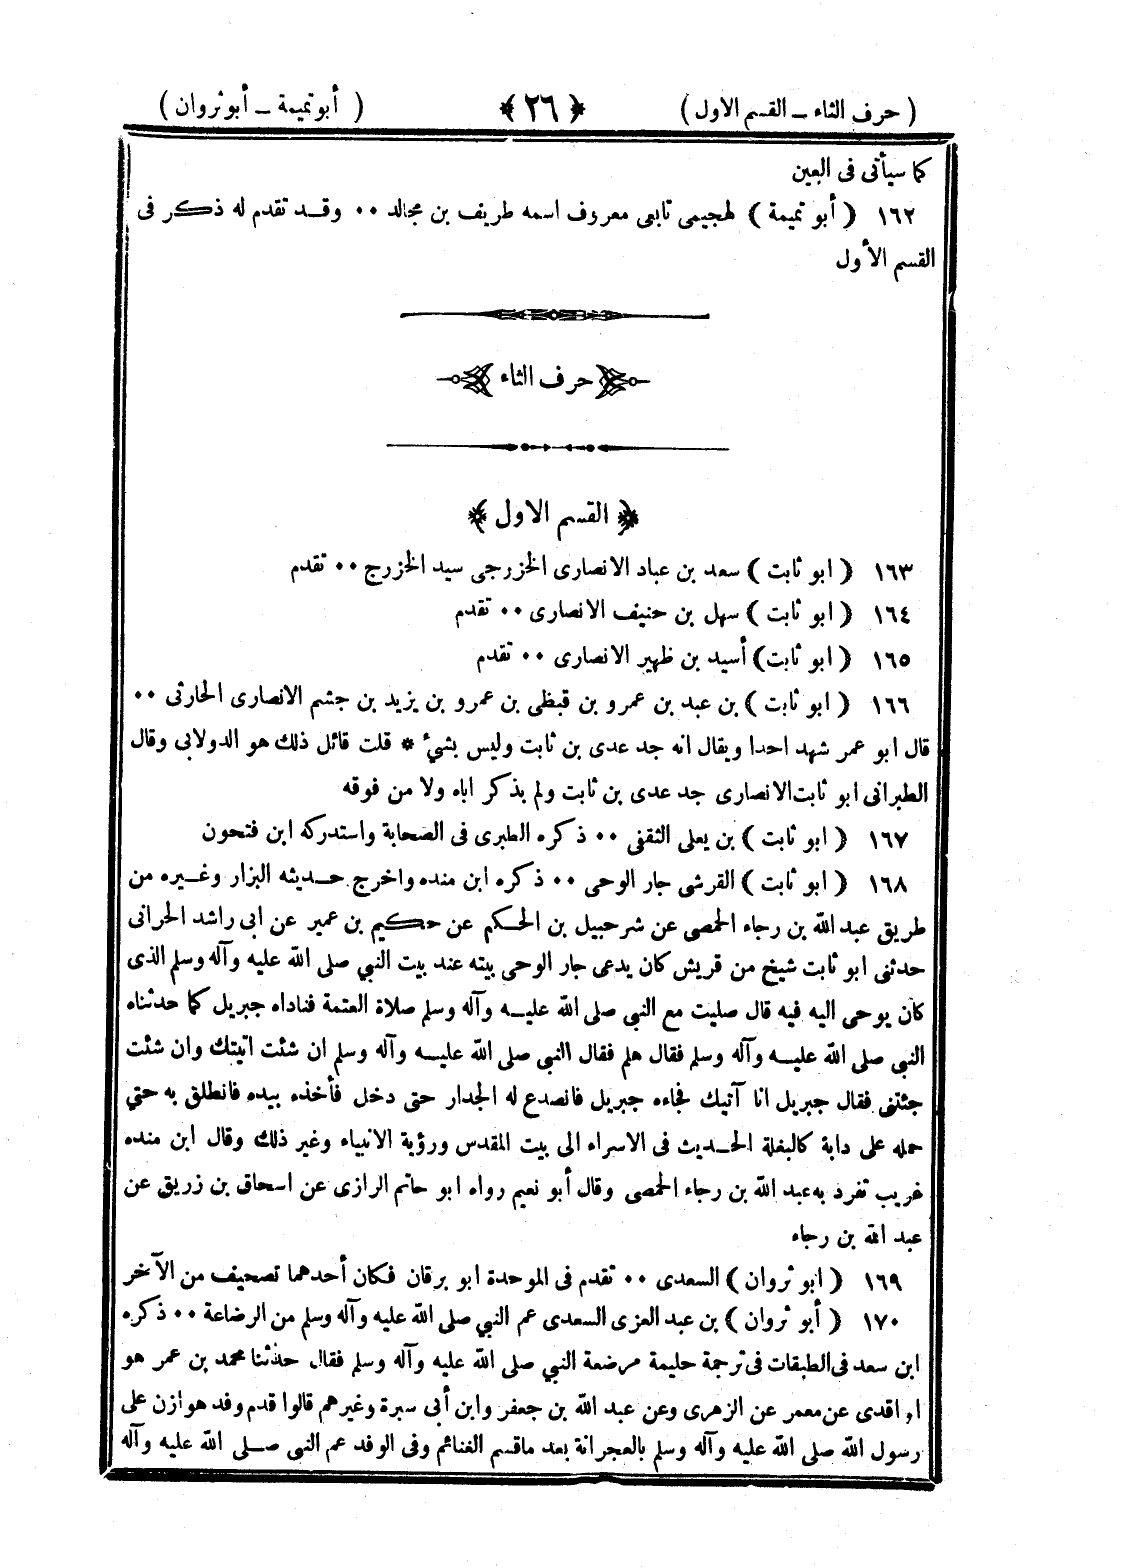 ( حرف الثاء ــ القسم الاول ) ﴿ ٢٦ ﴾ ( أبو تميمة ــ أبو ثروان )
كما سيأتى فى العين
١٦٢ ( أبو تميمة ) لهجيمى تابعى معروف اسمه طريف بن مجالد ٠٠ وقد تقدم له ذكر فى
القسم الأول
حرف الثاء
﴿ القسم الاول ﴾
١٦٣ ( ابو ثابت ) سعد بن عباد الانصارى الخزرجى سيد الخزرج ٠٠ تقدم
١٦٤ ( ابو ثابت ) سهل بن حنيف الانصارى ٠٠ تقدم
١٦٥ ( ابو ثابت) أسيد بن ظهير الانصارى ٠٠ تقدم
١٦٦ ( ابو ثابت ) بن عبد بن عمرو بن قبظى بن عمرو بن يزيد بن جشم الانصارى الحارثى ٠٠
قال ابو عمر شهد احدا ويقال انه جد عدى بن ثابت وليس بشئ * قلت قائل ذلك هو الدولابى وقال
الطبرانى ابو ثابت الانصارى جد عدى بن ثابت ولم يذكر اباه ولا من فوقه
١٦٧ ( ابو ثابت ) بن يعلى الثقفى ٠٠ ذكره الطبرى فى الصحابة واستدركه ابن فتحون
١٦٨ ( ابو ثابت ) القرشى جار الوحى ٠٠ ذكره ابن منده واخرج حديثه البزار وغيره من
طريق عبد الله بن رجاء الحمصى عن شرحبيل بن الحكم عن حكيم بن عمير عن ابى راشد الحرانى
حدثنى ابو ثابت شيخ من قريش كان يدعى جار الوحى بيته عند بيت النبي صلى الله عليه وآله وسلم الذى
كان يوحى اليه فيه قال صليت مع النبى صلى الله عليه وآله وسلم صلاة العتمة فناداه جبريل كما حدثناه
النبى صلى الله عليه وآله وسلم فقال هلم فقال النبى صلى الله عليه وآله وسلم ان شئت اتيتك وان شئت
جئتنى فقال جبريل انا آتيك فجاءه جبريل فانصدع له الجدار حتى دخل فأخذه بيده فانطلق به حتي
حمله على دابة كالبغلة الحديث فى الاسراء الى بيت المقدس ورؤية الانبياء وغير ذلك وقال ابن منده
غريب تفرد به عبد الله بن رجاء الحمصى وقال أبو نعيم رواه ابو حاتم الرازى عن اسحاق بن زريق عن
عبد الله بن رجاء
١٦٩ ( ابو ثروان ) السعدى ٠٠ تقدم فى الموحدة ابو برقان فكان أحدهما تصحيف من الآخر
١٧٠ ( أبو ثروان ) بن عبد العزى السعدى عم النبي صلى الله عليه وآله وسلم من الرضاعة ٠٠ ذكره
ابن سعد فى الطبقات فى ترجمة حليمة مرضعة النبي صلى الله عليه وآله وسلم فقال حدثنا محمد بن عمر هو
الواقدى عن معمر عن الزهرى وعن عبد الله بن جعفر وابن أبى سبرة وغيرهم قالوا قدم وفد هوازن على
رسول الله صلى الله عليه وآله وسلم بالعجرانة بعد ماقسم الغنائم وفى الوفد عم النبى صلى الله عليه وآله